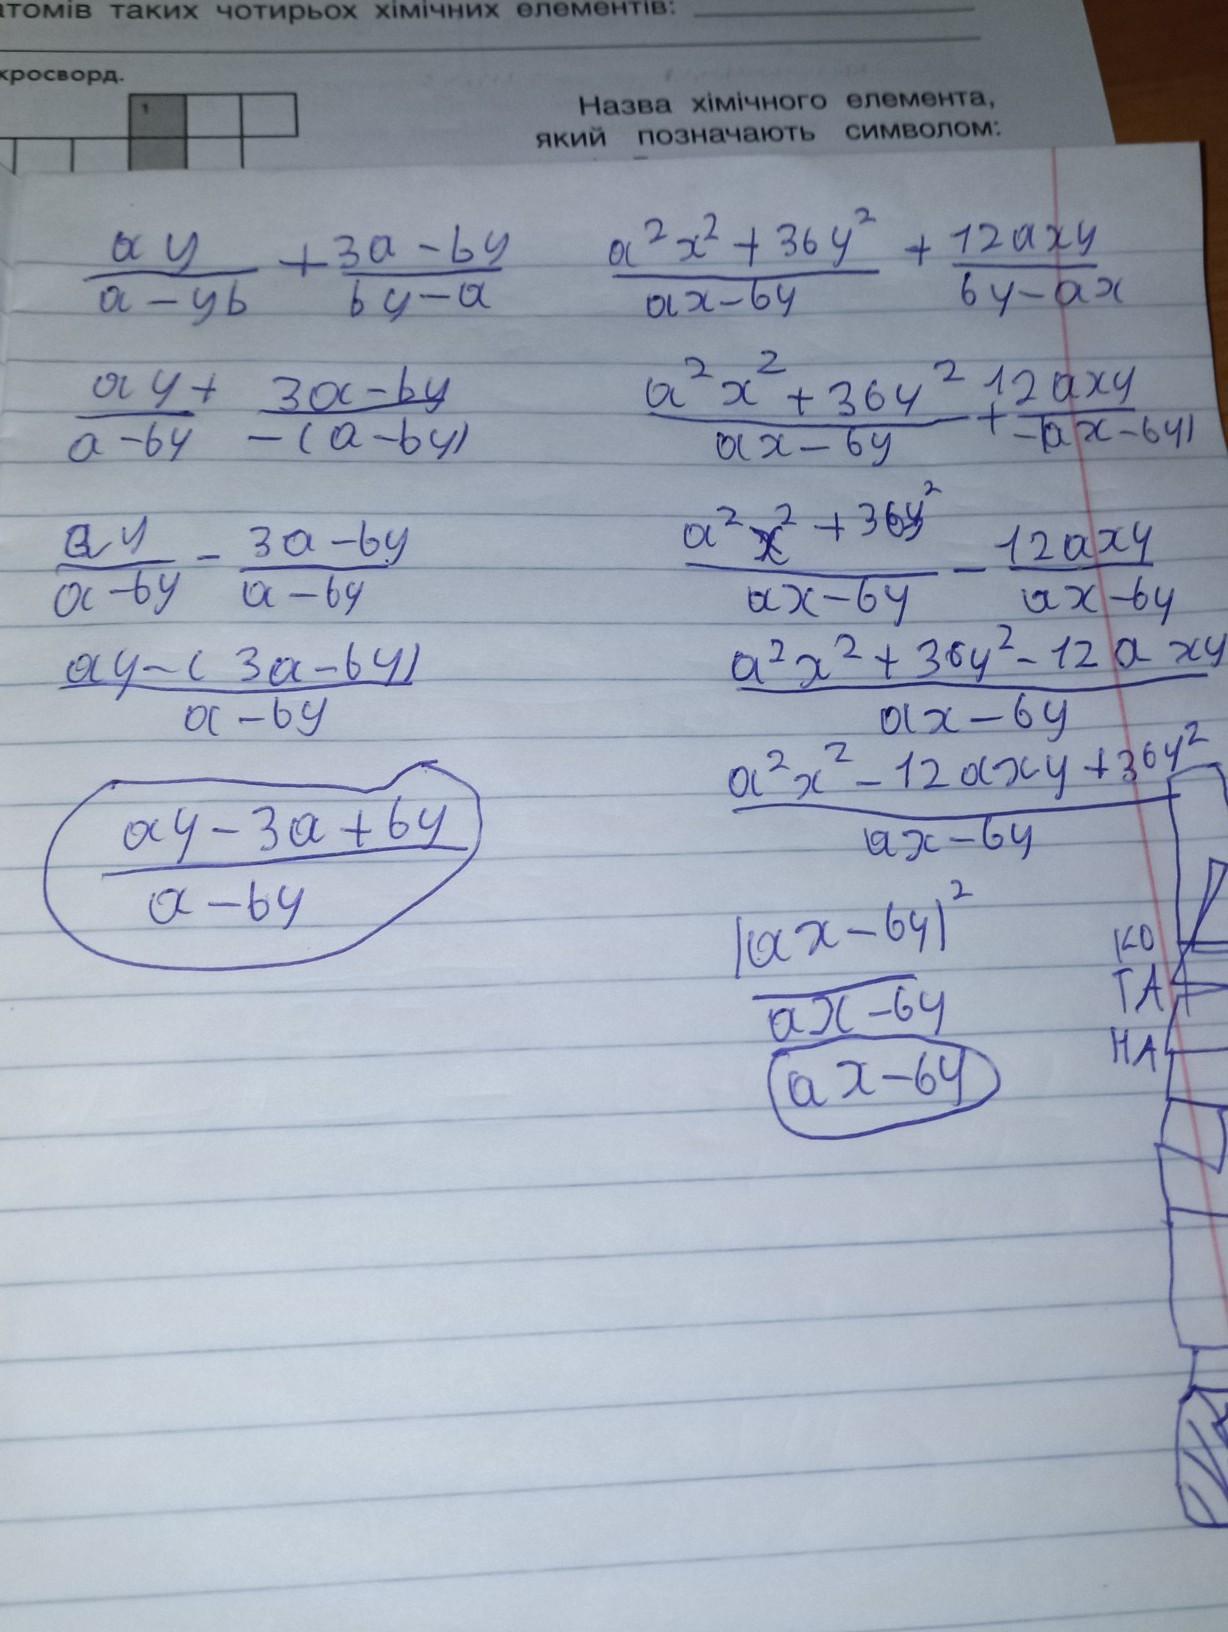 атомів таких чотирьох хімічних елементів:
кросворд.
1
Назва хімічного елемента,
який позначають символом:
ay/(a-yb) + (3a-by)/(by-a)
ay/(a-by) + (3a-by)/(-(a-by))
ay/(a-by) - (3a-by)/(a-by)
(ay-(3a-by))/(a-by)
(ay-3a+by)/(a-by)
(a²x²+36y²)/(ax-6y) + 12axy/(6y-ax)
(a²x²+36y²)/(ax-6y) + 12axy/(-(ax-6y))
(a²x²+36y²)/(ax-6y) - 12axy/(ax-6y)
(a²x²+36y²-12axy)/(ax-6y)
(a²x²-12axy+36y²)/(ax-6y)
(ax-6y)²/(ax-6y)
ax-6y
КО
ТА
НА